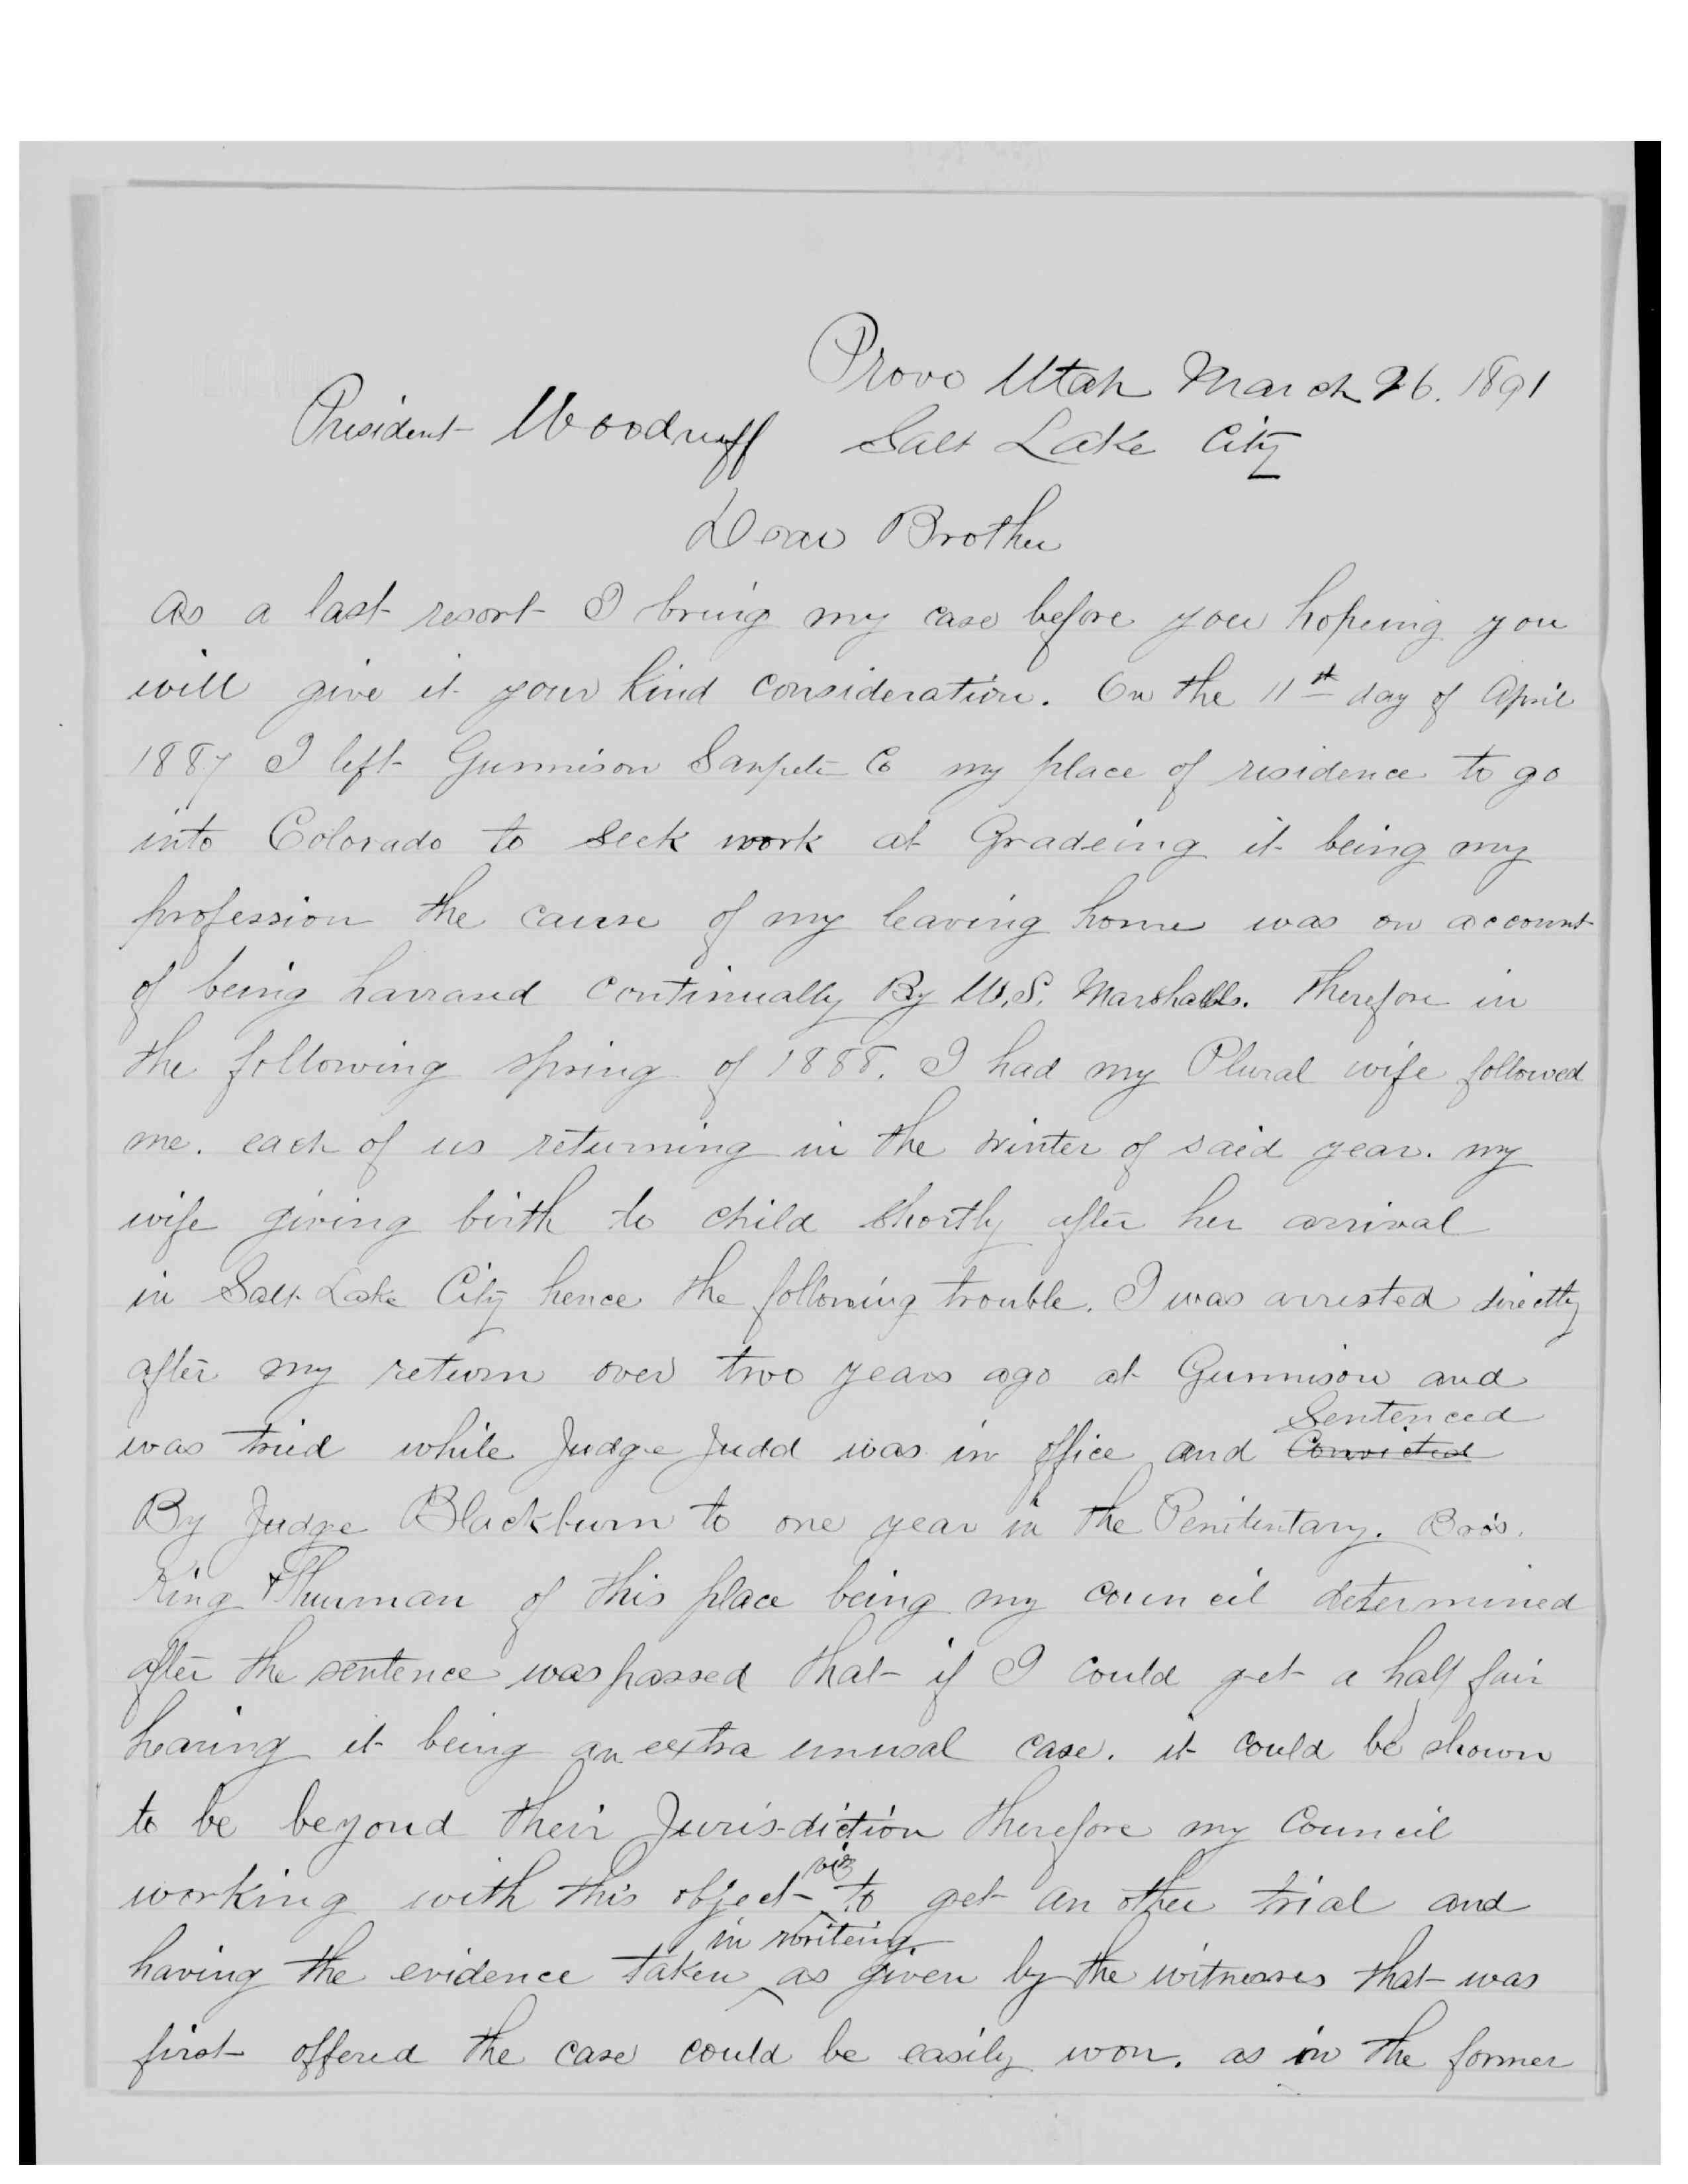 Provo Utah March 26. 1891
President Woodruff Salt Lake City
Dear Brother
As a last resort I bring my case before you hopeing you
will give it your kind consideration. On the 11th day of April
1887 I left Gunnison Sanpete Co my place of residence to go
into Colorado to seek work at Gradeing it being my
profession the cause of my leaving home was on account
of being harrased continually By U.S. Marshalls. therefore in
the following spring of 1888. I had my Plural wife followed
me. each of us returning in the winter of said year. my
wife giving birth to child shortly after her arrival
in Salt Lake City hence the following trouble. I was arrested directly
after my return over two years ago at Gunnison and
was tried while Judge Judd was in office and Convicted Sentenced
By Judge Blackburn to one year in the Penitentary. Bro's.
King & Thurman of this place being my council determined
after the sentence was passed that if I could get a half fair
hearing it being an extra unusal case. it could be shown
to be beyond their Juris-diction therefore my Council
working with this object viz to get an other trial and
having the evidence taken in writeing. as given by the witnesses that was
first offered the case could be easily won. as in the former